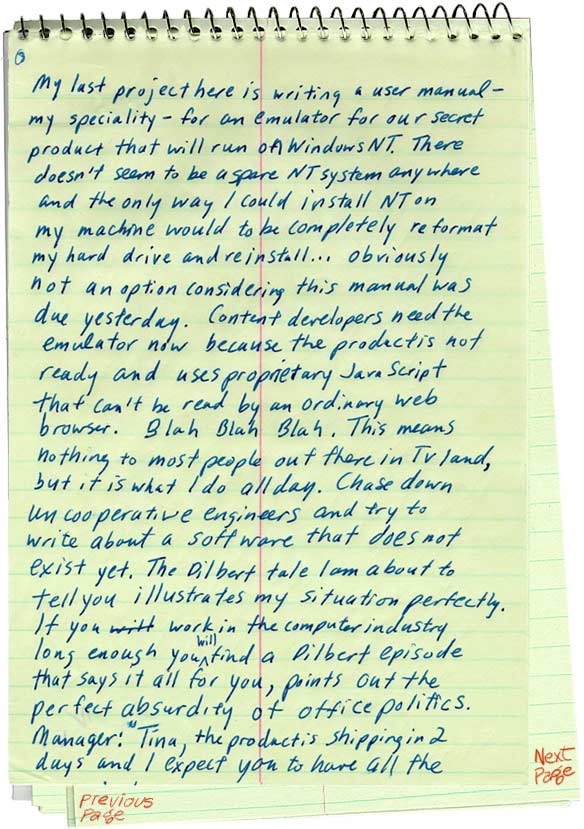 6
My last project here is writing a user manual –
my speciality – for an emulator for our secret
product that will run on Windows NT. There
doesn't seem to be a spare NT system anywhere
and the only way I could install NT on
my machine would to be completely reformat
my hard drive and reinstall... obviously
not an option considering this manual was
due yesterday. Content developers need the
emulator now because the product is not
ready and uses proprietary JavaScript
that can't be read by an ordinary web
browser. Blah Blah Blah. This means
nothing to most people out there in TV land,
but it is what I do all day. Chase down
uncooperative engineers and try to
write about a software that does not
exist yet. The Dilbert tale I am about to
tell you illustrates my situation perfectly.
If you will work in the computer industry
long enough you will find a Dilbert episode
that says it all for you, points out the
perfect absurdity of office politics.
Manager: "Tina, the product is shipping in 2
days and I expect you to have all the
Next
Page
Previous
Page